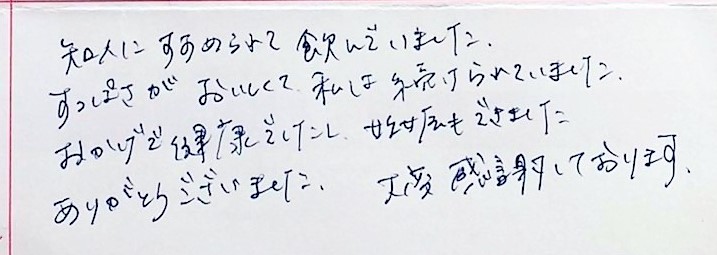 知人にすすめられて飲んでいました.
すっぱさがおいしくて、私は続けられていました.
おかげで健康でしたし、妊娠もできました
ありがとうございました. 大変感謝しております.